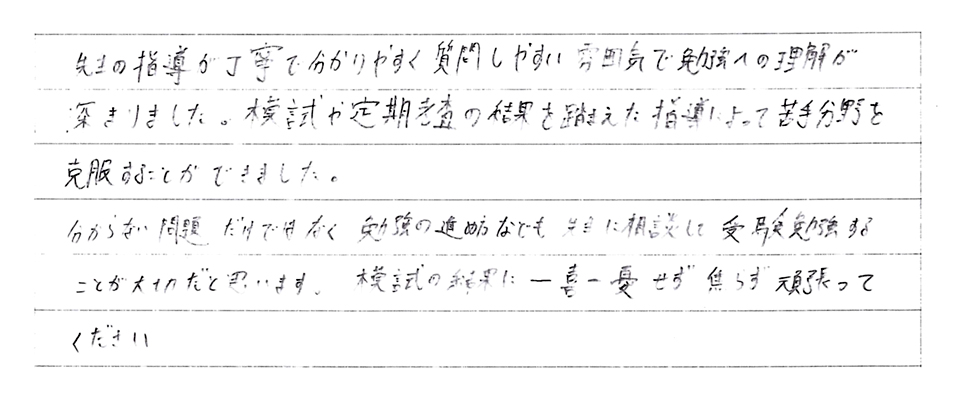 先生の指導が丁寧で分かりやすく質問しやすい雰囲気で勉強への理解が
深まりました。模試や定期考査の結果を踏まえた指導によって苦手分野を
克服することができました。
分からない問題だけではなく勉強の進め方なども先生に相談して受験勉強する
ことが大切だと思います。模試の結果に一喜一憂せず焦らず頑張って
ください